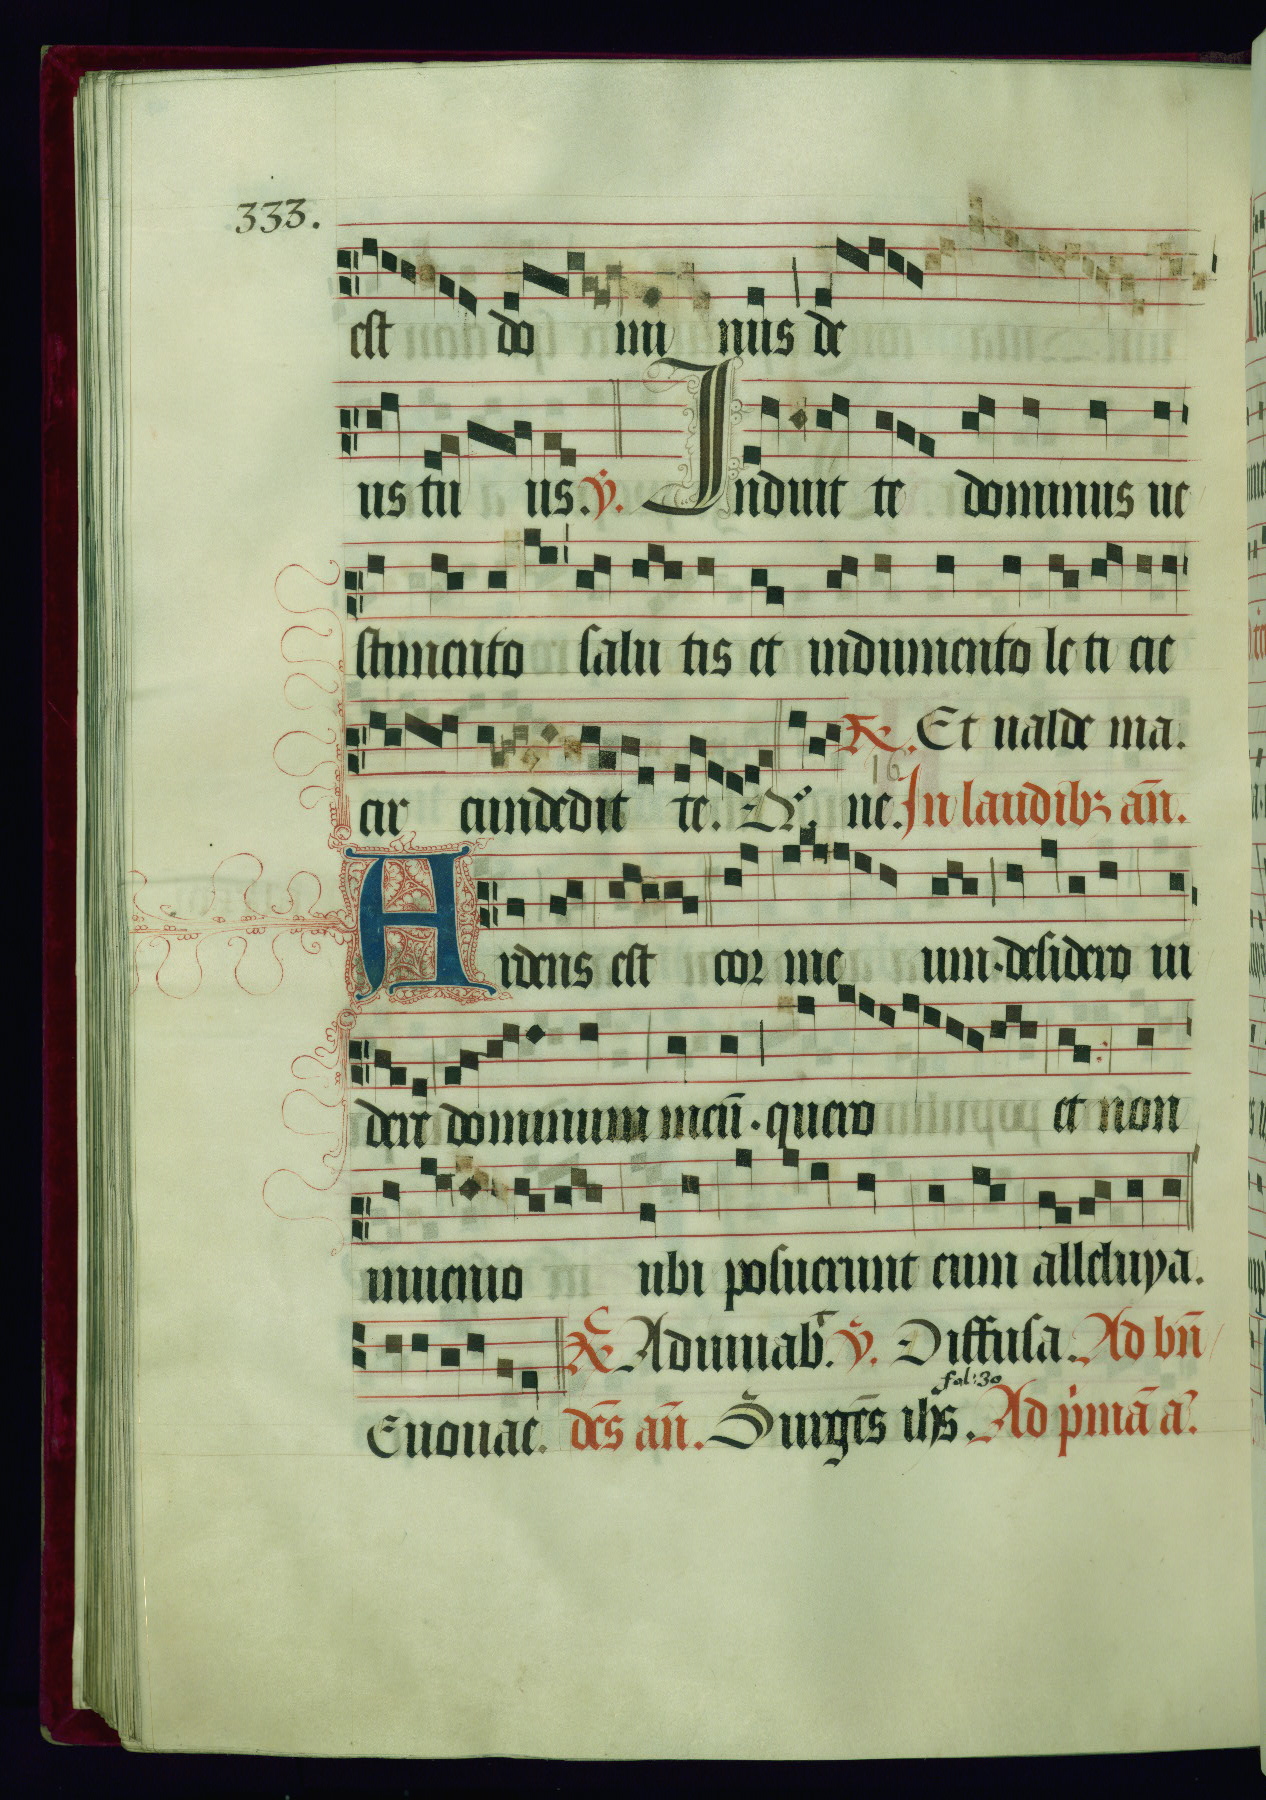 333.
est do mi nus de
us tu us. ℣. Induit te dominus ue
stimento salu tis et indumento le ti cie
℟. Et ualde ma.
16
cir cundedit te. ne. In laudibꝫ an̄.
Ardens est cor me um · desidero ui
dere dominum meū · quero et non
inuenio ubi posuerunt eum alleluya.
Adiuuab. ℣. Diffusa. Ad bn̄
fol: 30
Euouae. dc̄s an̄. Surgēs ih̄s. Ad pͥmā a